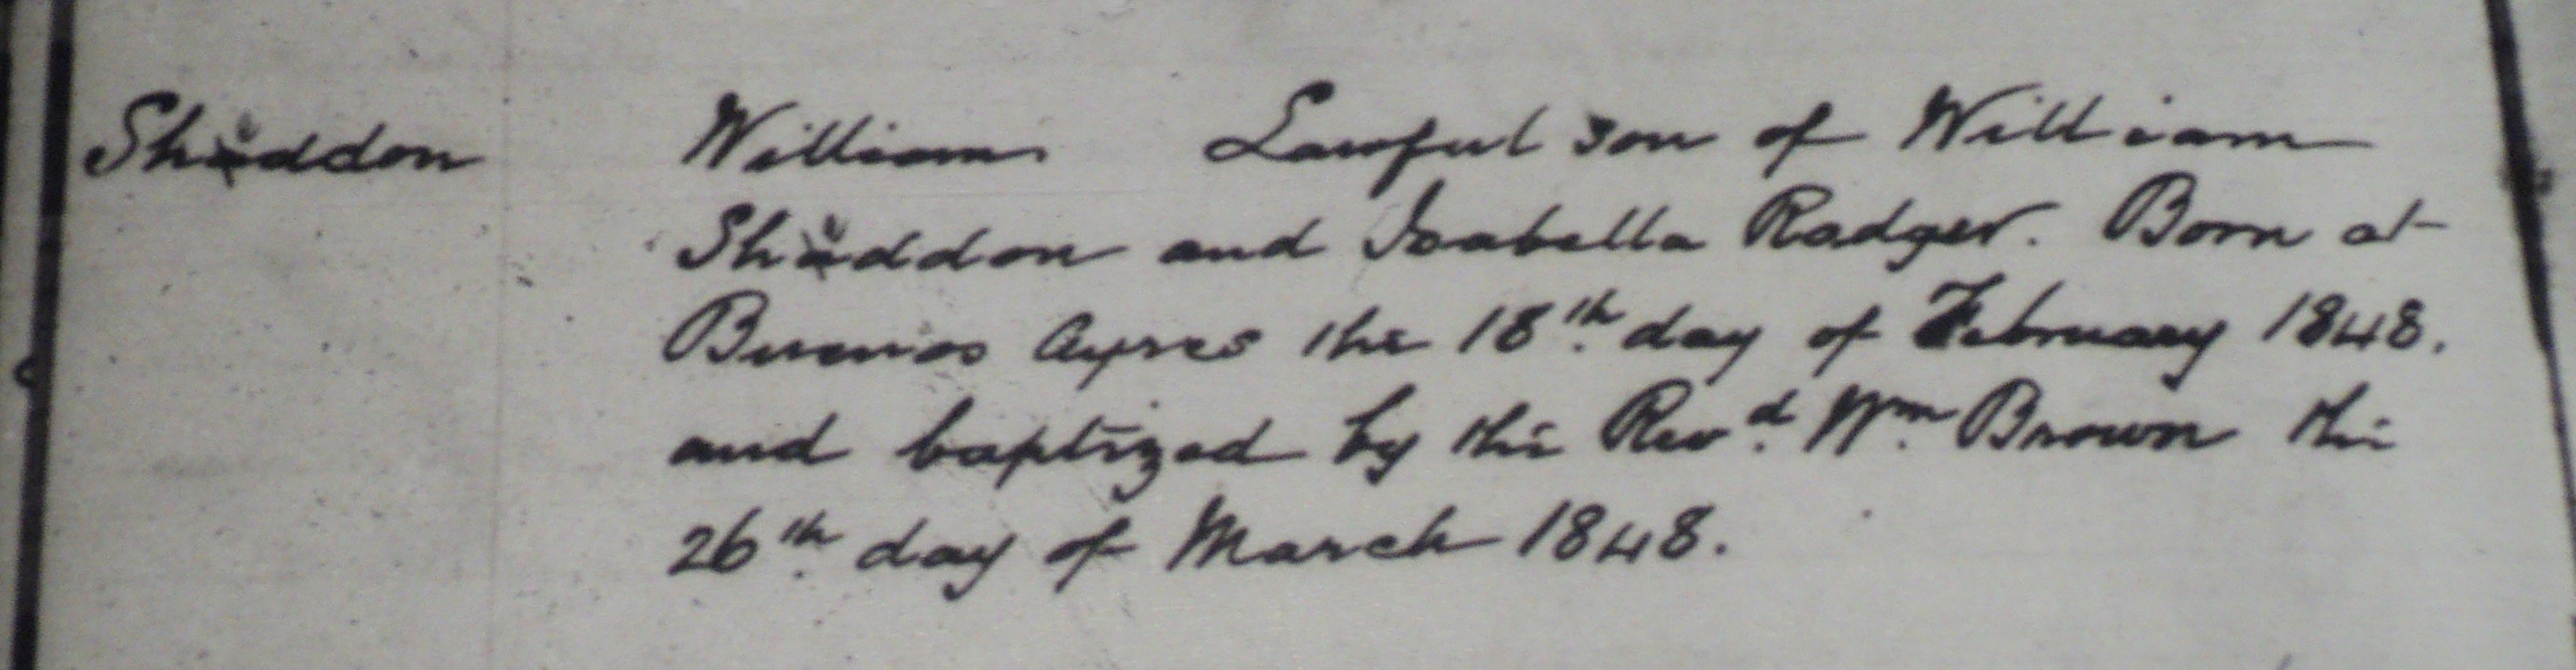 Sheddon William Lawful son of William
Sheddon and Isabella Radger. Born at
Buenos Ayres the 18th day of February 1848.
and baptized by the Revd. Wm. Brown the
26th day of March 1848.